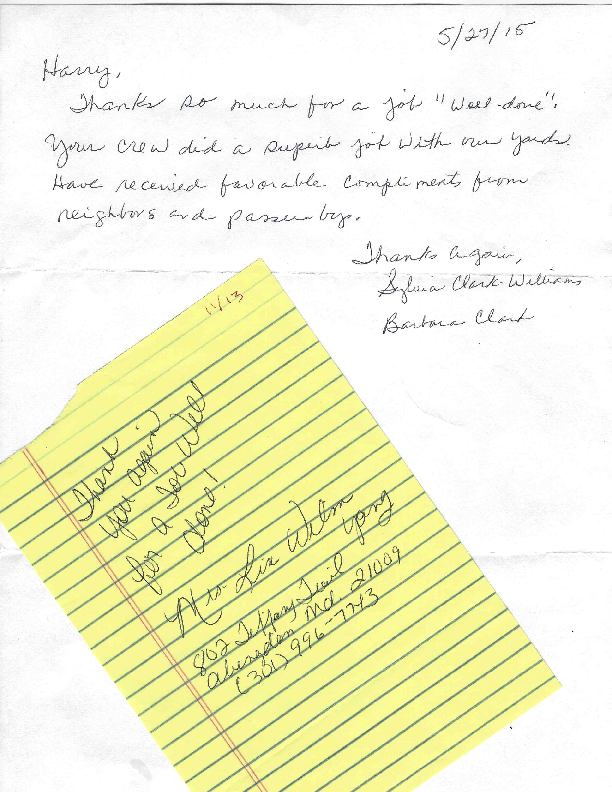 5/27/15
Harry,
Thanks so much for a job "well-done".
Your crew did a superb job with our yards.
Have received favorable compliments from
neighbors and passersby.
Thanks again,
Sylvia Clark-Williams
Barbara Clark
11/13
Thank
you again
for a Job Well
done!
Mrs. Lia
802 Tiffany Trail
Abingdon Md. 21009
(301) 996-7713